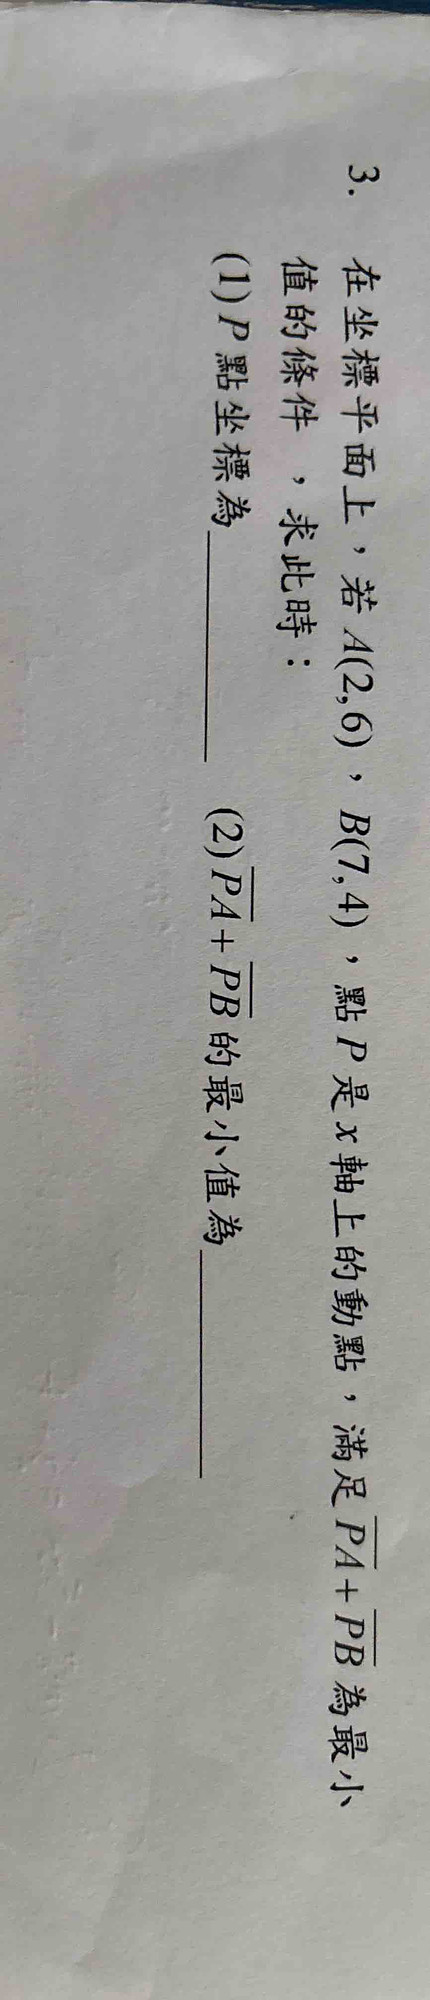 3. 在坐標平面上，若 A(2,6)，B(7,4)，點 P 是 x 軸上的動點，滿足 P̅A̅ + P̅B̅ 為最小
值的條件，求此時：
(1) P 點坐標為＿＿＿＿ (2) P̅A̅ + P̅B̅ 的最小值為＿＿＿＿